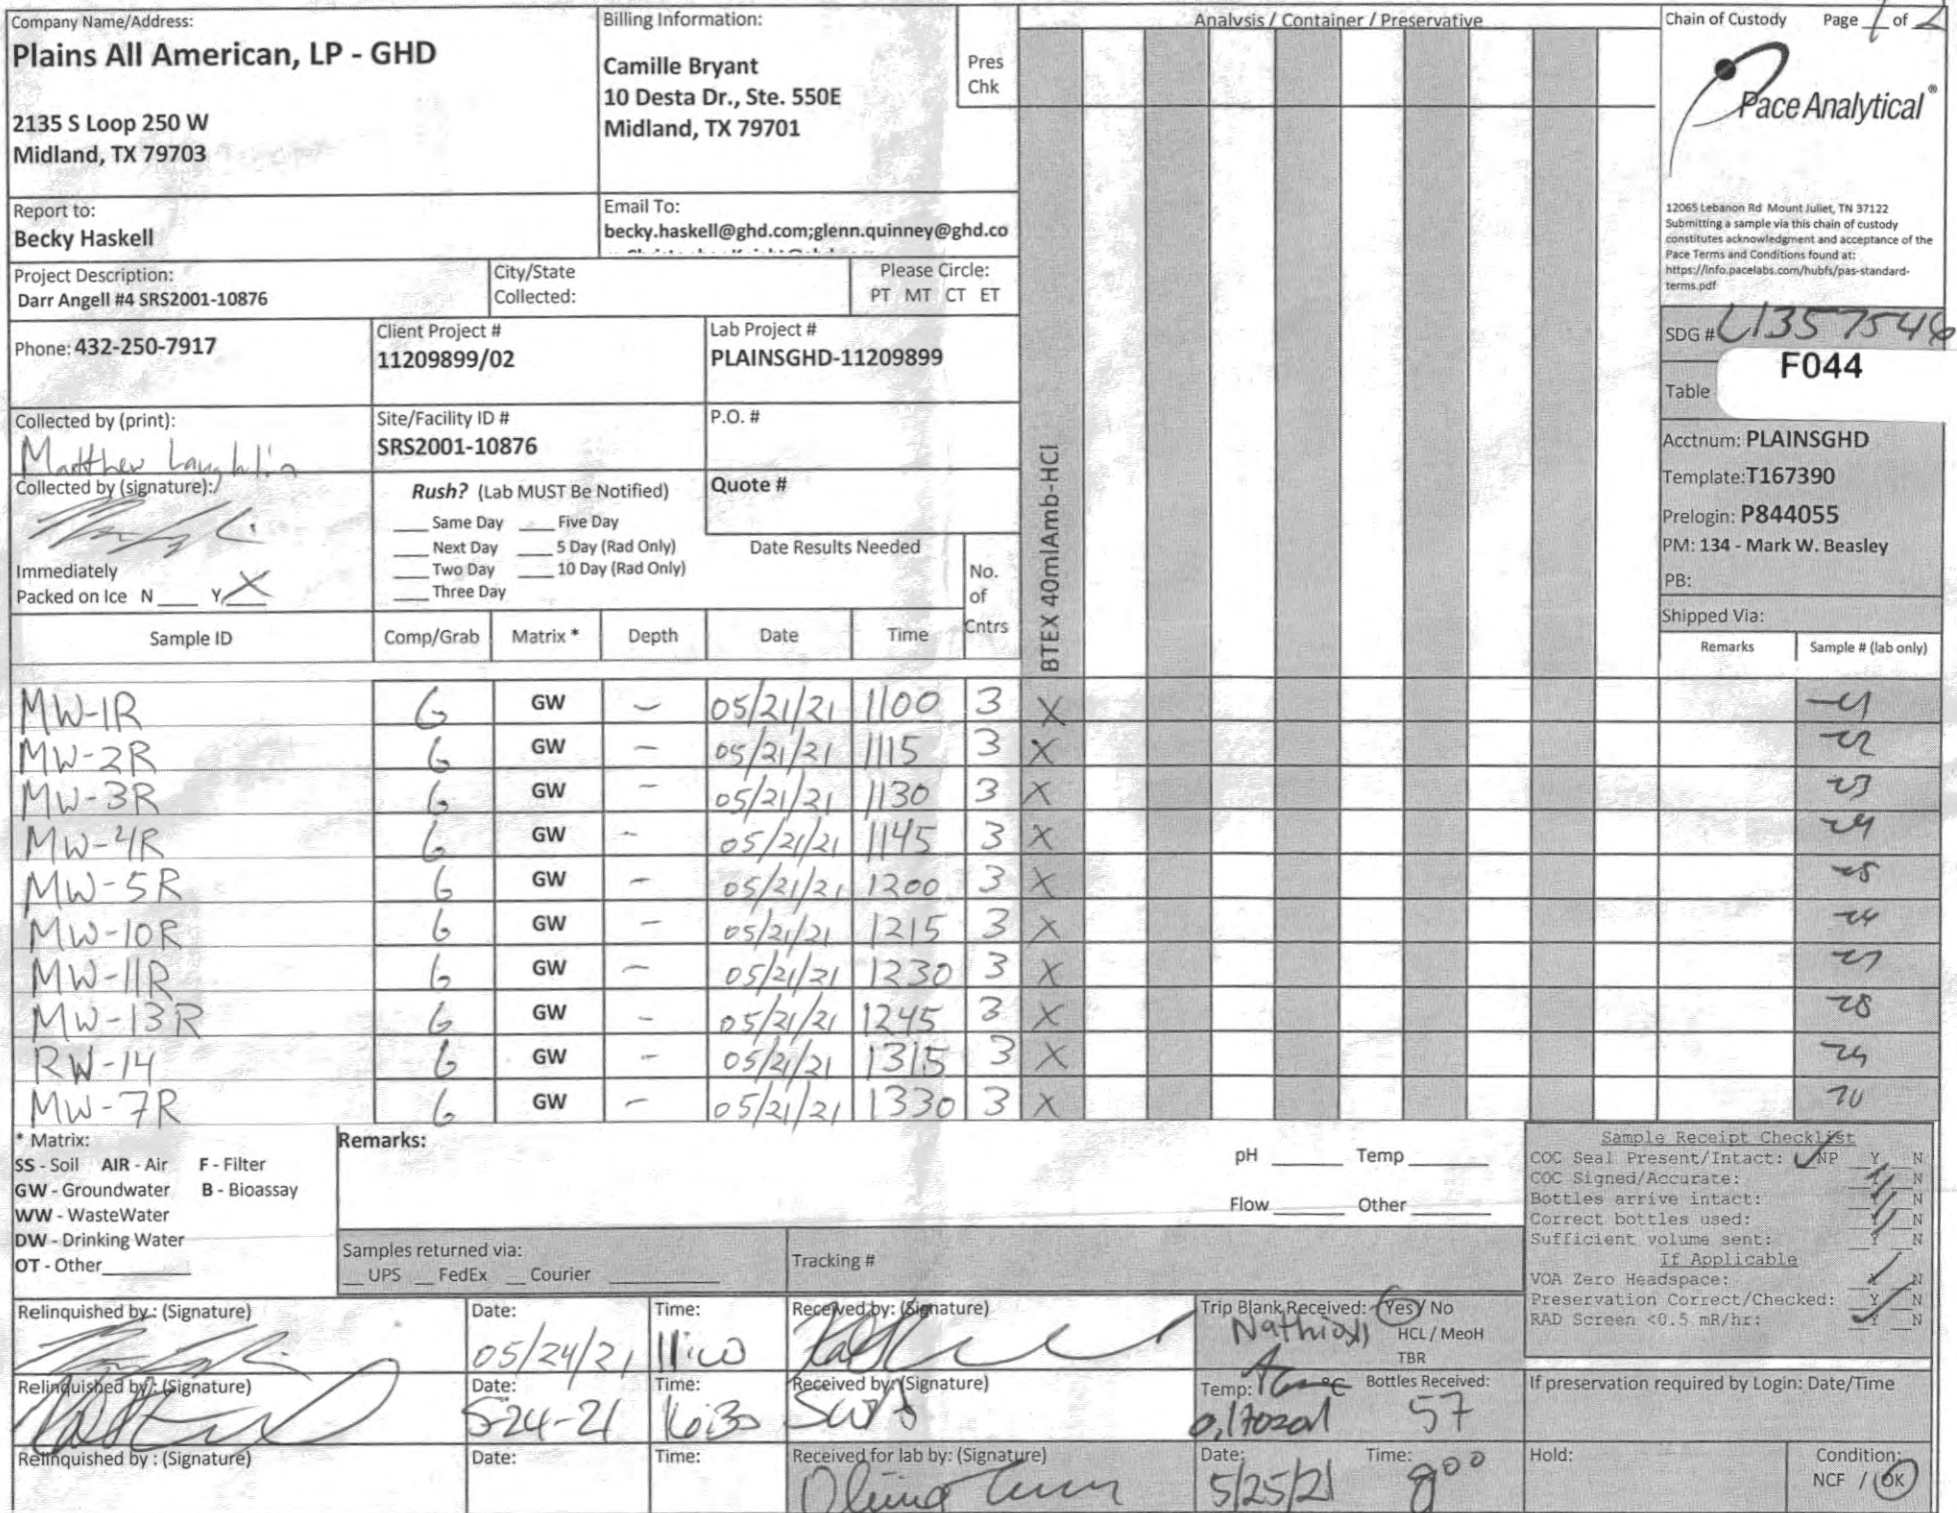 Company Name/Address:
Plains All American, LP - GHD
2135 S Loop 250 W
Midland, TX 79703
Billing Information:
Camille Bryant
10 Desta Dr., Ste. 550E
Midland, TX 79701
Pres
Chk
Analysis / Container / Preservative
Chain of Custody Page 1 of 2
Pace Analytical®
12065 Lebanon Rd Mount Juliet, TN 37122
Submitting a sample via this chain of custody
constitutes acknowledgment and acceptance of the
Pace Terms and Conditions found at:
https://info.pacelabs.com/hubfs/pas-standard-
terms.pdf
Report to:
Becky Haskell
Email To:
becky.haskell@ghd.com;glenn.quinney@ghd.co
Project Description:
Darr Angell #4 SRS2001-10876
City/State
Collected:
Please Circle:
PT MT CT ET
Phone: 432-250-7917
Client Project #
11209899/02
Lab Project #
PLAINSGHD-11209899
SDG # L1357546
F044
Table
Collected by (print):
Matthew Laughlin
Site/Facility ID #
SRS2001-10876
P.O. #
Acctnum: PLAINSGHD
Template:T167390
Prelogin: P844055
PM: 134 - Mark W. Beasley
PB:
Collected by (signature):
Rush? (Lab MUST Be Notified)
___ Same Day ___ Five Day
___ Next Day ___ 5 Day (Rad Only)
___ Two Day ___ 10 Day (Rad Only)
___ Three Day
Quote #
Date Results Needed
Immediately
Packed on Ice N ___ Y X
No.
of
Cntrs
BTEX 40mlAmb-HCl
Shipped Via:
Sample ID Comp/Grab Matrix * Depth Date Time Remarks Sample # (lab only)
MW-1R G GW - 05/21/21 1100 3 X -01
MW-2R G GW - 05/21/21 1115 3 X -02
MW-3R G GW - 05/21/21 1130 3 X -03
MW-4R G GW - 05/21/21 1145 3 X -04
MW-5R G GW - 05/21/21 1200 3 X -05
MW-10R G GW - 05/21/21 1215 3 X -06
MW-11R G GW - 05/21/21 1230 3 X -07
MW-13R G GW - 05/21/21 1245 3 X -08
RW-14 G GW - 05/21/21 1315 3 X -09
MW-7R G GW - 05/21/21 1330 3 X 10
* Matrix:
SS - Soil AIR - Air F - Filter
GW - Groundwater B - Bioassay
WW - WasteWater
DW - Drinking Water
OT - Other
Remarks:
pH ___ Temp ___
Flow ___ Other ___
Samples returned via:
__ UPS __ FedEx __ Courier
Tracking #
Sample Receipt Checklist
COC Seal Present/Intact: NP Y N
COC Signed/Accurate: Y N
Bottles arrive intact: Y N
Correct bottles used: Y N
Sufficient volume sent: Y N
If Applicable
VOA Zero Headspace: Y N
Preservation Correct/Checked: Y N
RAD Screen <0.5 mR/hr: Y N
Relinquished by : (Signature)
Date:
05/24/21
Time:
Received by: (Signature)
Trip Blank Received: Yes / No
HCL / MeoH
TBR
Relinquished by : (Signature)
Date:
5-24-21
Time:
16:30
Received by: (Signature)
Temp: °C
Bottles Received:
57
If preservation required by Login: Date/Time
Relinquished by : (Signature)
Date:
Time:
Received for lab by: (Signature)
Date:
5/25/21
Time:
900
Hold:
Condition:
NCF / OK